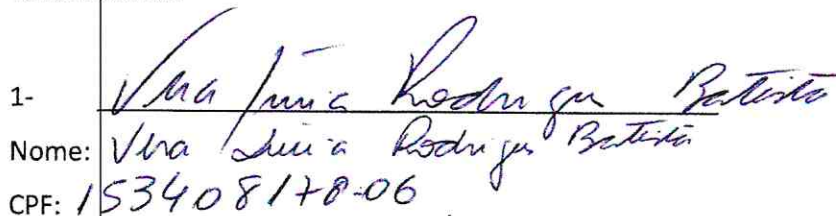 1- Vera Lúcia Rodrigues Batista
Nome: Vera Lúcia Rodrigues Batista
CPF: 153408178-06